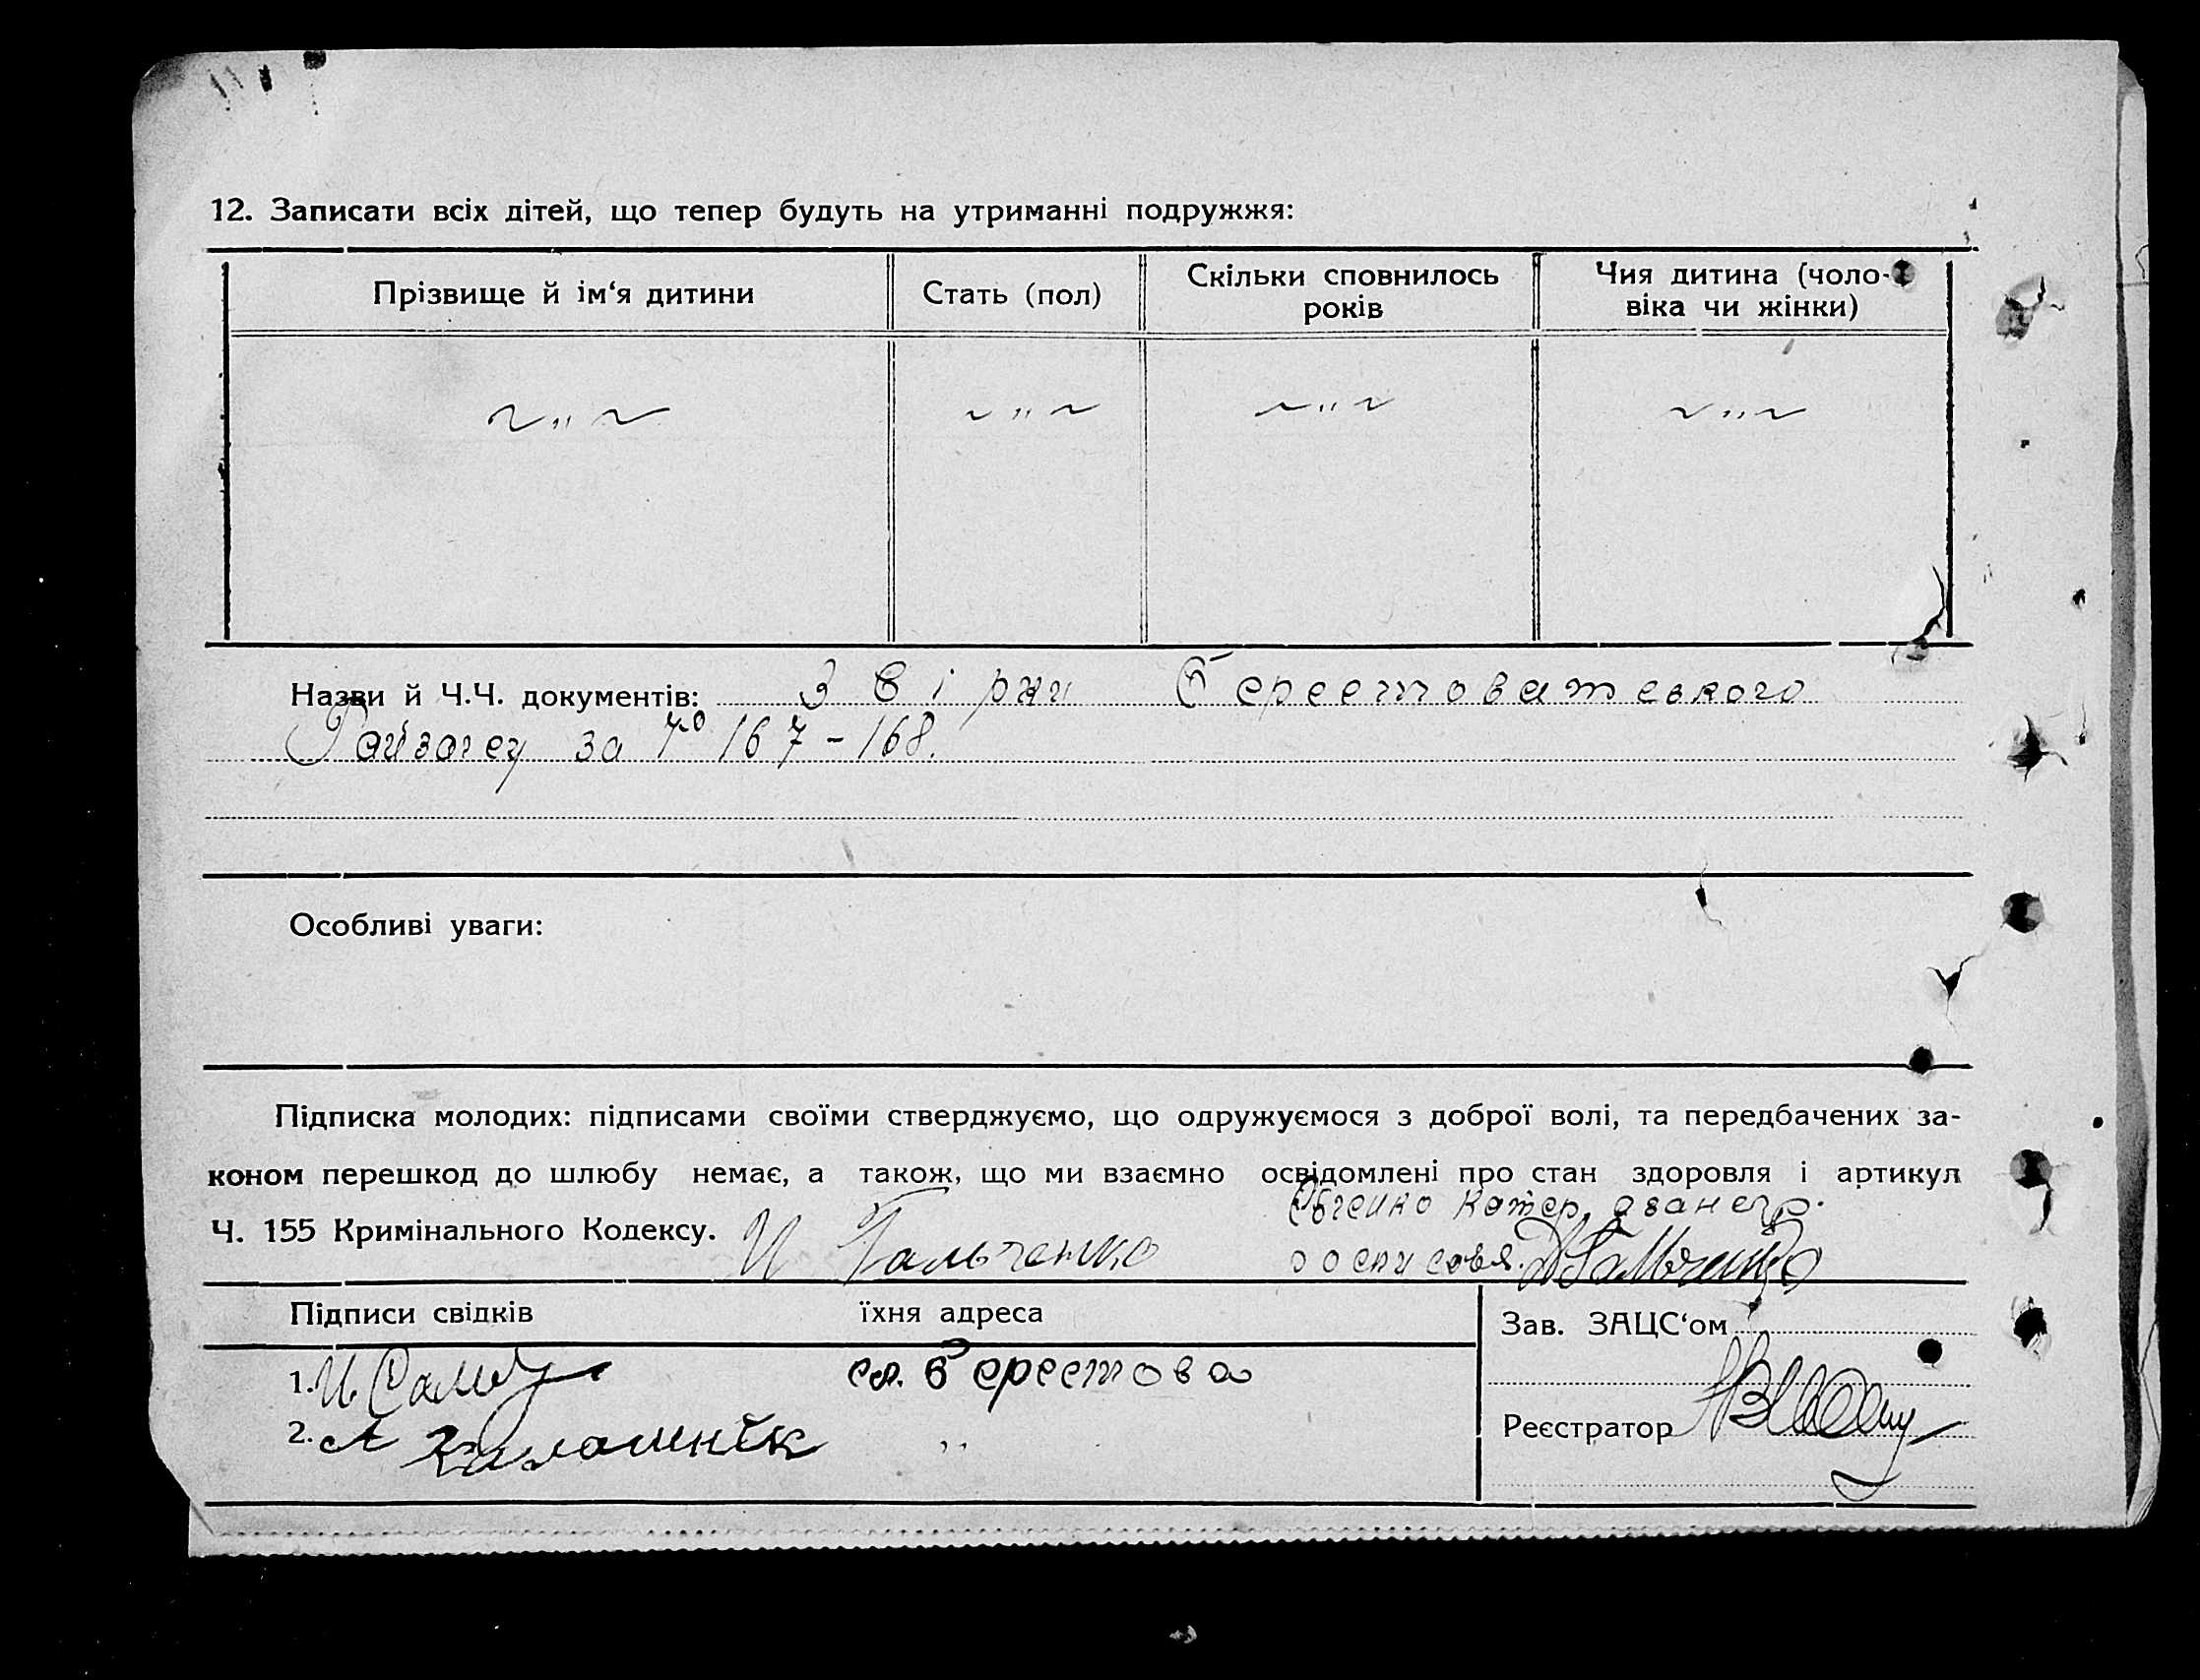 12. Записати всіх дітей, що тепер будуть на утриманні подружжя:
Прізвище й ім‘я дитини
Стать (пол)
Скільки сповнилось
років
Чия дитина (чоло-
віка чи жінки)
~ „ ~ ~ „ ~ ~ „ ~ ~ „ ~
Назви й Ч.Ч. документів: Звіржи Берестоватського
за № 167-168.
Особливі уваги:
Підписка молодих: підписами своїми стверджуємо, що одружуємося з доброї волі, та передбачених за-
коном перешкод до шлюбу немає, а також, що ми взаємно освідомлені про стан здоровля і артикул
Катер.
Ч. 155 Кримінального Кодексу. И Гальченко
Підписи свідків їхня адреса
Зав. ЗАЦС‘ом
1. с. Берестова
2. А Калашнік „
Реєстратор